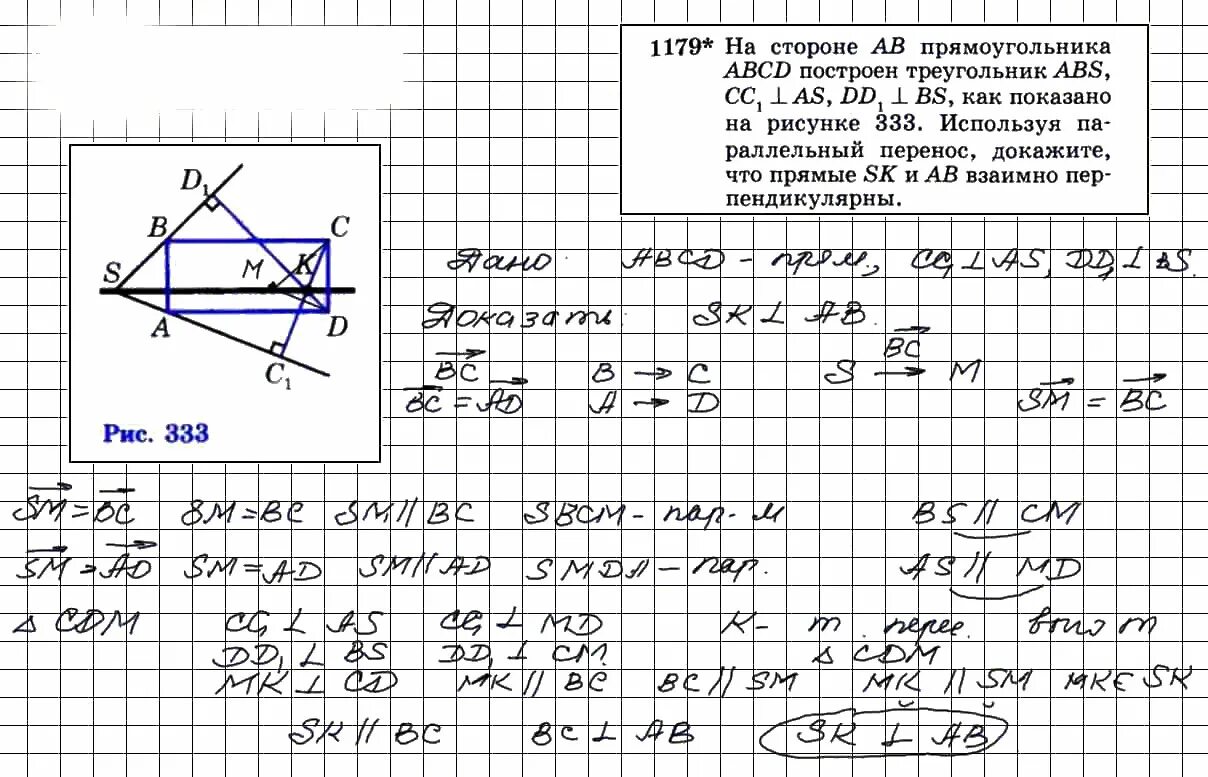 1179* На стороне AB прямоугольника
ABCD построен треугольник ABS,
CC₁ ⊥ AS, DD₁ ⊥ BS, как показано
на рисунке 333. Используя па-
раллельный перенос, докажите,
что прямые SK и AB взаимно пер-
пендикулярны.
D₁
B
C
S
M
K
A
D
C₁
Рис. 333
Дано: ABCD – прям., CC₁ ⊥ AS, DD₁ ⊥ BS.
Доказать: SK ⊥ AB.
BC→ B → C S →(BC→) M
BC→ = AD→ A → D SM→ = BC→
SM→ = BC→ SM = BC SM // BC SBCM – пар-м BS // CM
SM→ = AD→ SM = AD SM // AD SMDA – пар. AS // MD
Δ CDM CC₁ ⊥ AS CC₁ ⊥ MD K – т. перес. высот
DD₁ ⊥ BS DD₁ ⊥ CM Δ CDM
MK ⊥ CD MK // BC BC // SM MK // SM MK ∈ SK
SK // BC BC ⊥ AB SK ⊥ AB